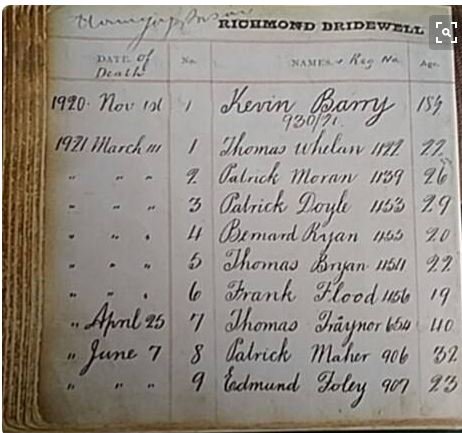 RICHMOND BRIDEWELL
DATE of Death No. NAMES & Reg No. Age.
1920. Nov 1st 1 Kevin Barry 18½
930/21.
1921 March 1 Thomas Whelan 1122 22
" " " 2 Patrick Moran 1139 26
" " " 3 Patrick Doyle 1153 29
" " " 4 Bernard Ryan 1155 20
" " " 5 Thomas Bryan 1154 22
" " " 6 Frank Flood 1156 19
" April 25 7 Thomas Traynor 654 40
" June 7 8 Patrick Maher 906 32
" " " 9 Edmund Foley 907 23